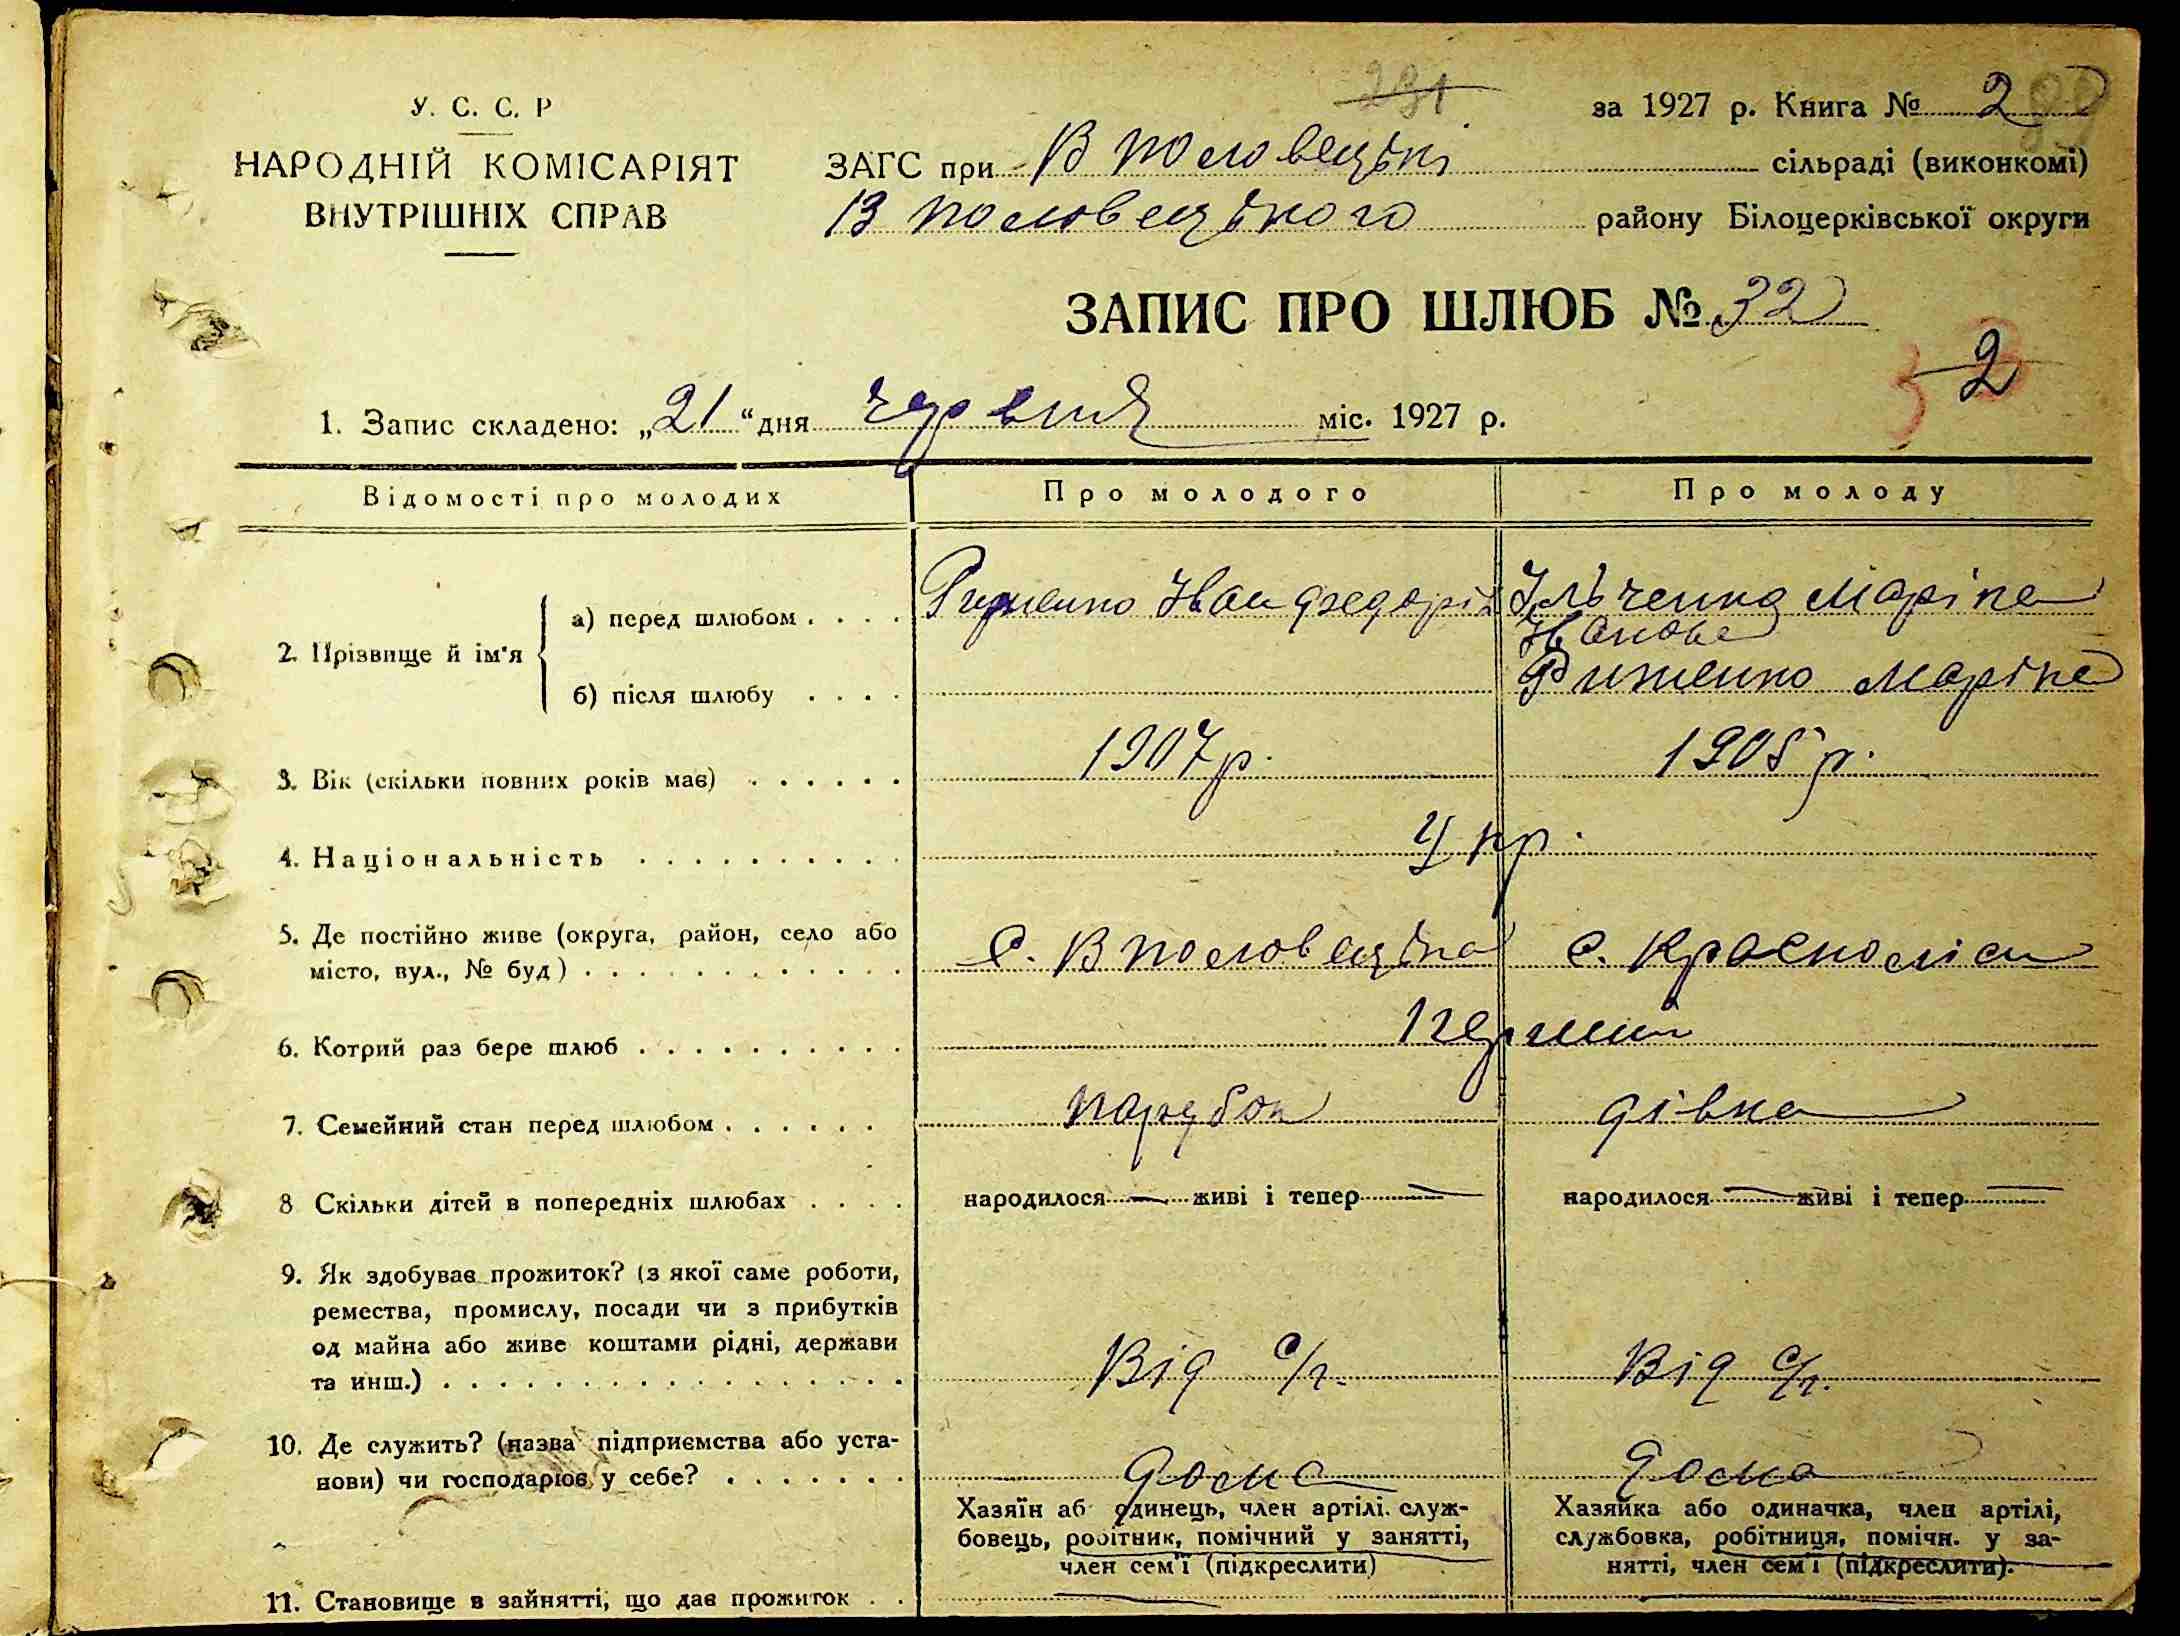 231
У. С. С. Р
за 1927 р. Книга № 2
НАРОДНІЙ КОМІСАРІЯТ
ВНУТРІШНІХ СПРАВ
ЗАГС при В Половецькі сільраді (виконкомі)
В Половецького району Білоцерківської округи
ЗАПИС ПРО ШЛЮБ № 32
2
1. Запис складено: „21“ дня червня міс. 1927 р.
Відомості про молодих
Про молодого
Про молоду
2. Прізвище й ім'я
а) перед шлюбом . . . .
Риженко Іван Федорів
Ільченко Маріна
Іванова
б) після шлюбу . . . .
Риженко Маріна
3. Вік (скільки повних років має) . . . . . .
1907 р.
1905 р.
4. Національність . . . . . . . . . .
Укр.
5. Де постійно живе (округа, район, село або
місто, вул., № буд) . . . . . . . . . . . .
с. В Половецька
с. Красноліси
6. Котрий раз бере шлюб . . . . . . . . . .
Перший
7. Семейний стан перед шлюбом . . . . . .
парубок
дівка
8 Скільки дітей в попередніх шлюбах . . . .
народилося — живі і тепер —
народилося — живі і тепер —
9. Як здобував прожиток? (з якої саме роботи,
ремества, промислу, посади чи з прибутків
од майна або живе коштами рідні, держави
та инш.) . . . . . . . . . . . . . . . . .
Від с/г.
Від с/г.
10. Де служить? (назва підприємства або уста-
нови) чи господарює у себе? . . . . . . .
дома
дома
Хазяїн аб одинець, член артілі. служ-
бовець, робітник, помічний у занятті,
член сем'ї (підкреслити)
Хазяйка або одиначка, член артілі,
службовка, робітниця, помічн. у за-
нятті, член сем'ї (підкреслити).
11. Становище в зайнятті, що дає прожиток . .